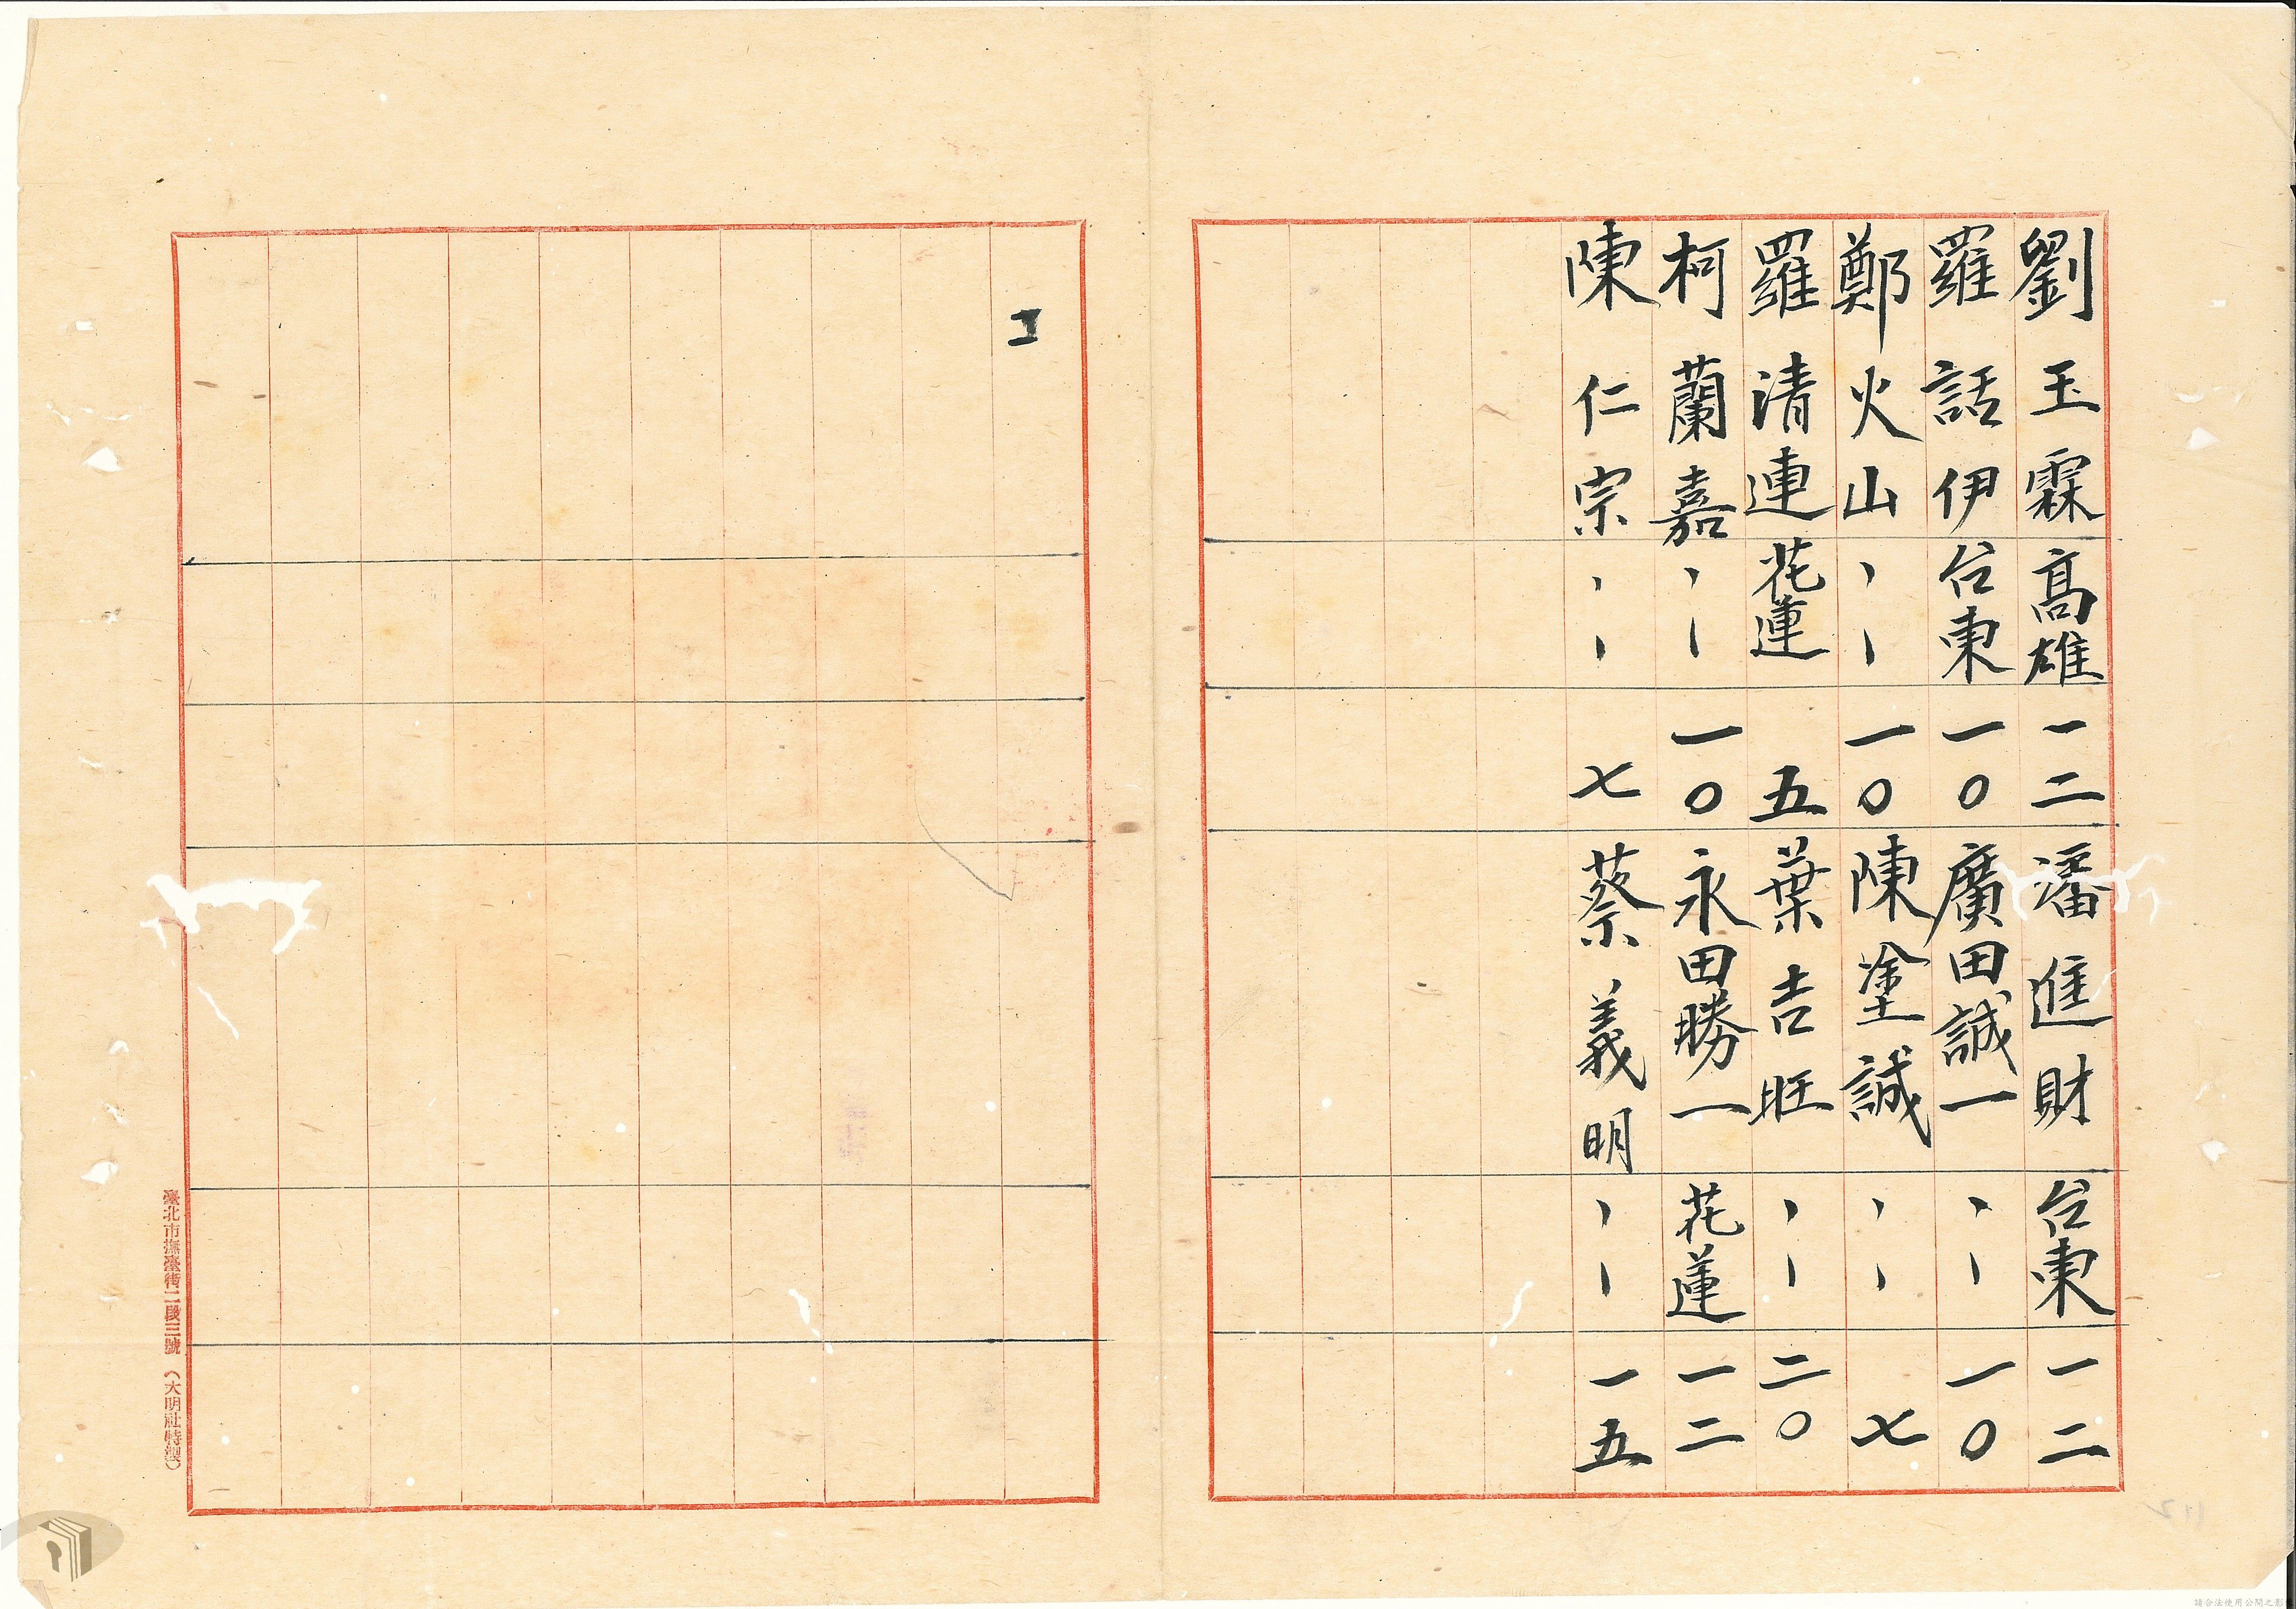 劉玉霖 高雄 一二 潘進財 台東 一二
羅話伊 台東 一〇 廣田誠一 〃 一〇
鄭火山 〃 一〇 陳塗誠 〃 七
羅清連 花蓮 五 葉吉旺 〃 二〇
柯蘭嘉 〃 一〇 永田勝一 花蓮 一二
陳仁宗 〃 七 蔡義明 〃 一五
臺北市撫臺街二段三號 (大明社特製)
請合法使用公開之影